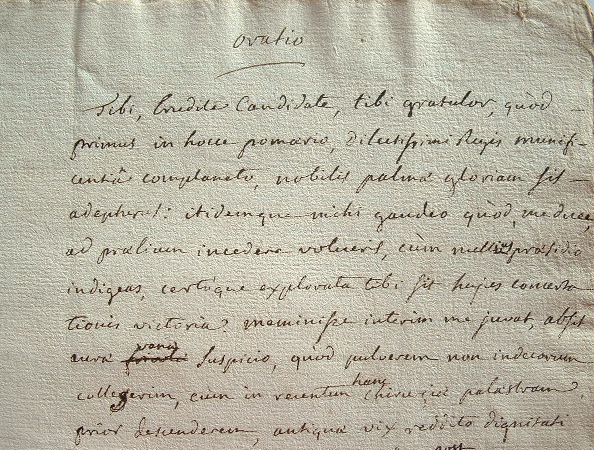 oratio
Tibi, Erudite Candidate, tibi gratulor, quòd
primus in hocce pomœrio, dilectissimi Regis munifi-
centiâ complanato, nobiles palmæ gloriam sis
adeptus: itidemque mihi gaudeo quòd, me duce,
ad prælium incedere volueris, cùm nullius præsidio
indigeas, certáque explorata tibi sit hujus concerta
tionis victoria. meminisse interim me juvat, absit
cura vana suspicio, quòd pulverem non indecorum
collegerim, cùm in recentem hanc chirurgiæ palæstram,
prior descenderem, antiquæ vix reddito dignitati
post